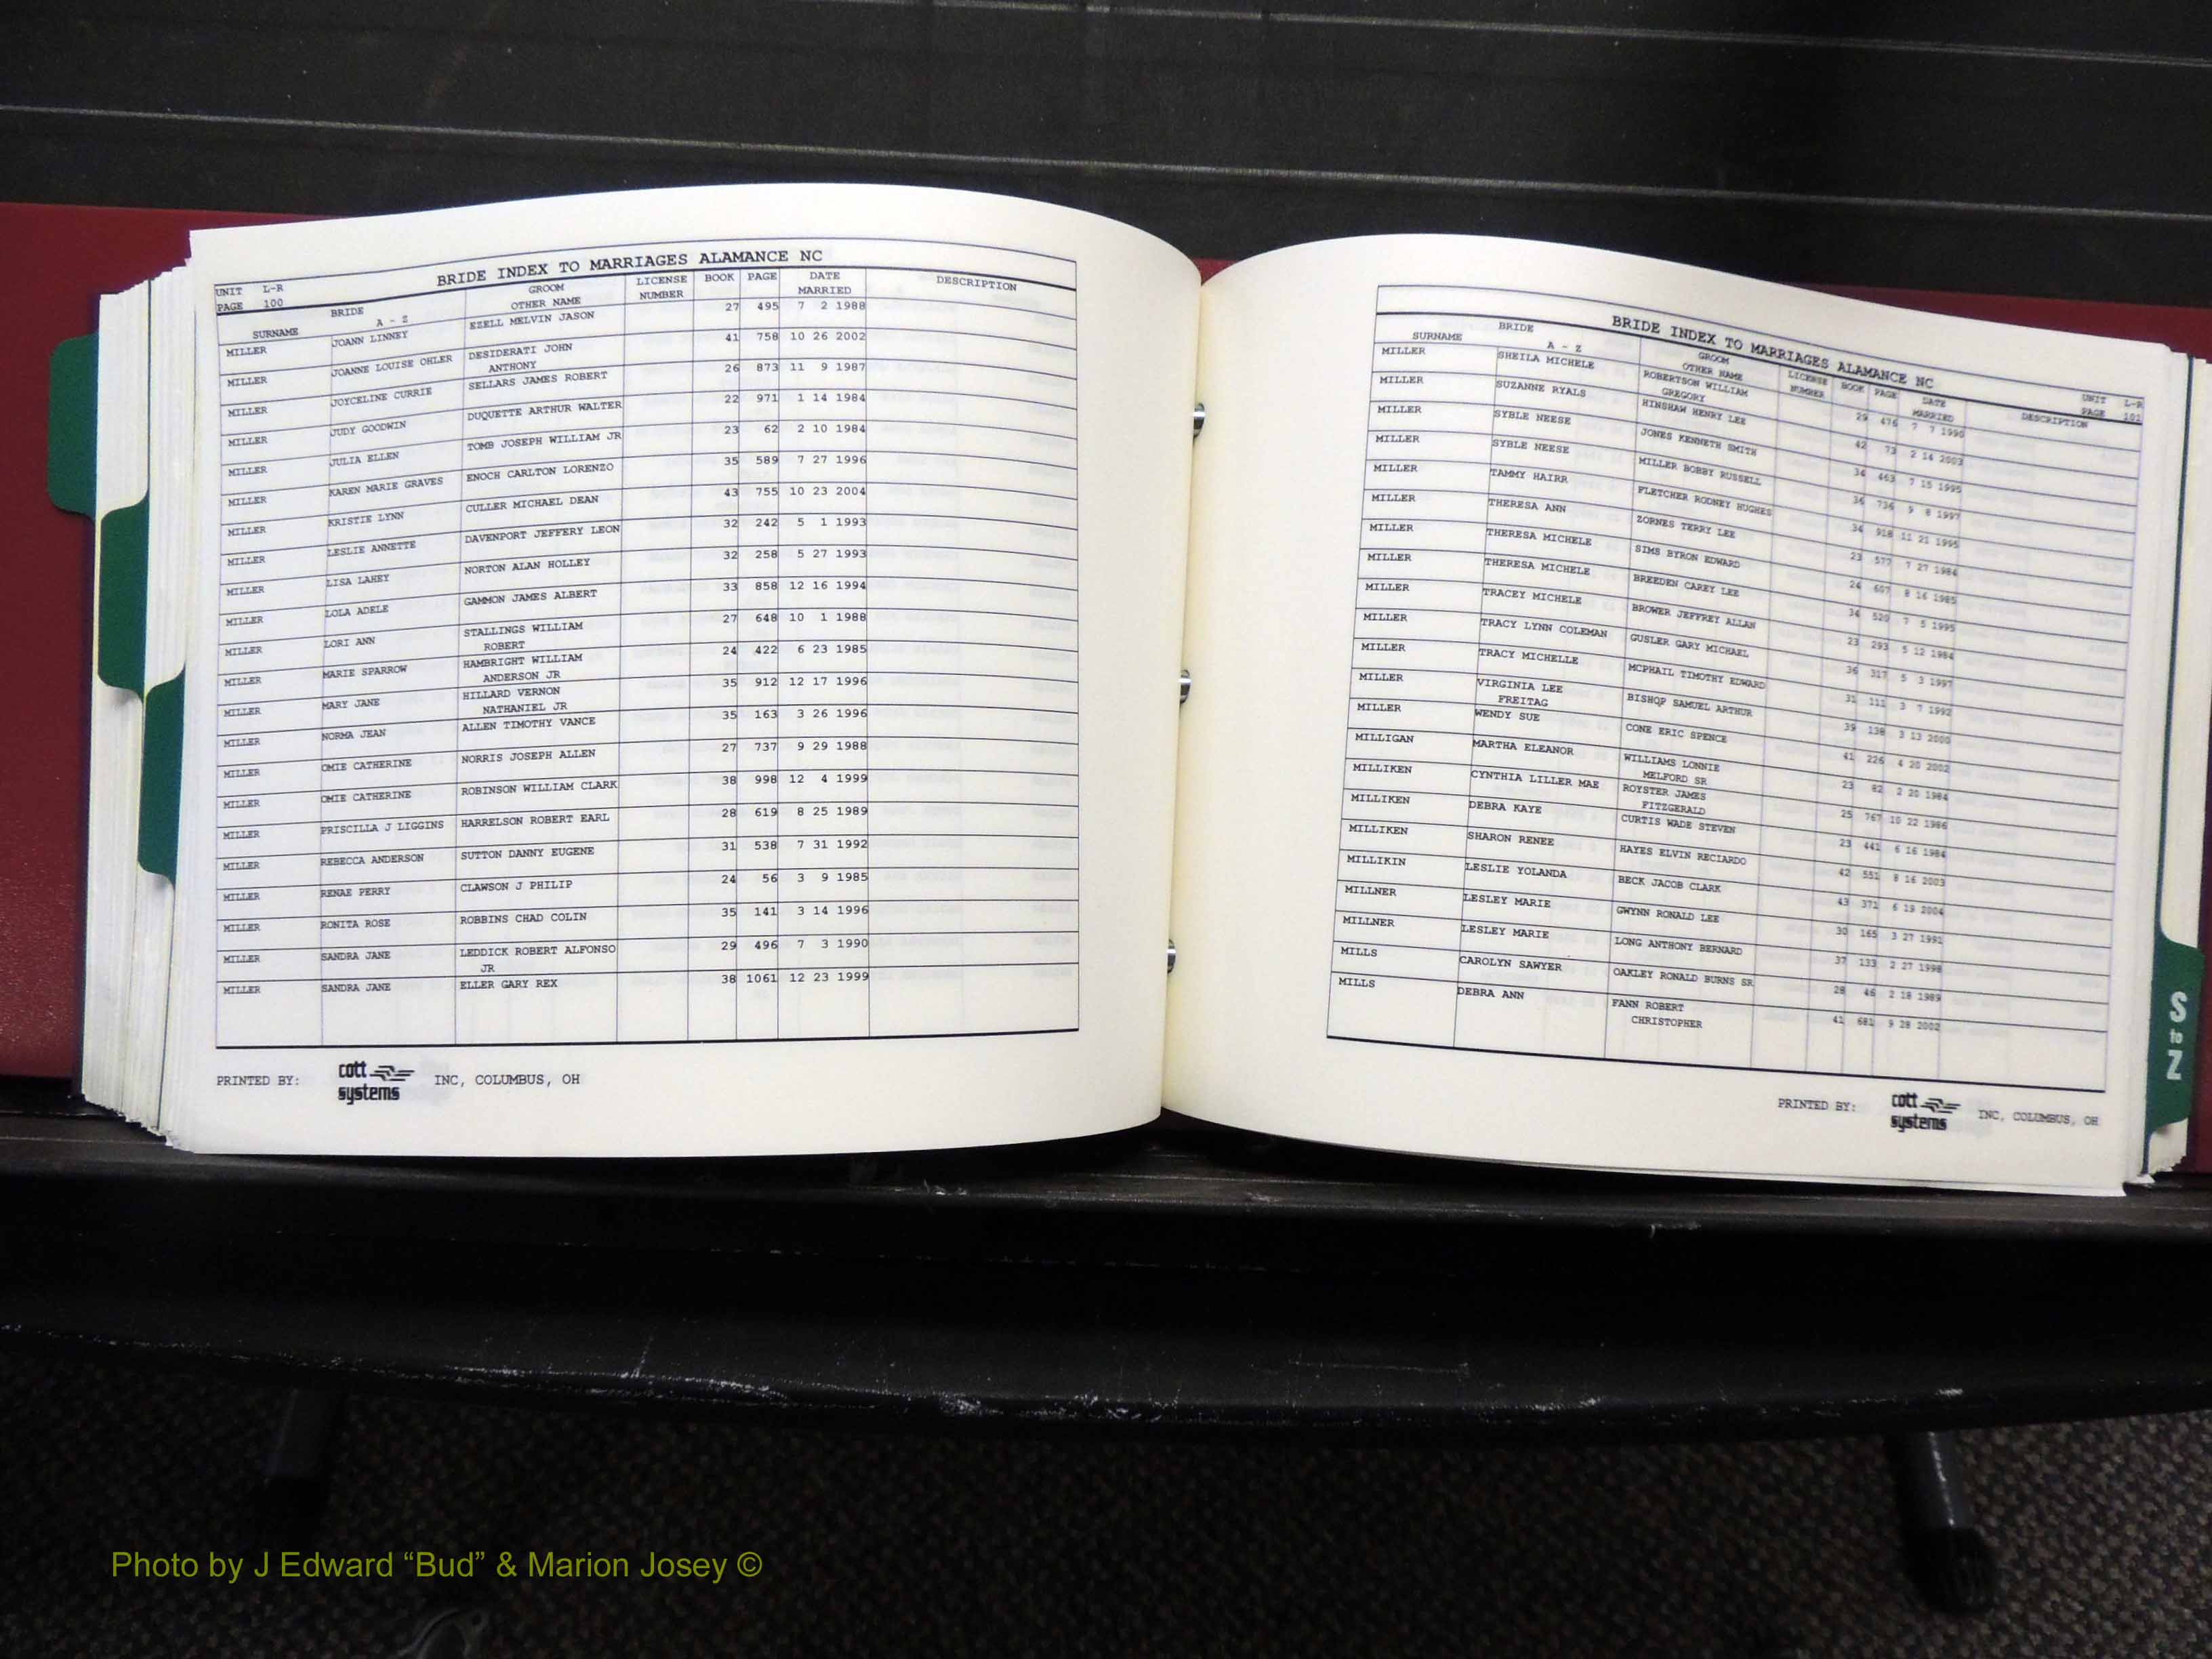 BRIDE INDEX TO MARRIAGES ALAMANCE NC
UNIT L-R
PAGE 100
SURNAME BRIDE A - Z GROOM OTHER NAME LICENSE NUMBER BOOK PAGE DATE MARRIED DESCRIPTION
MILLER JOANN LINNEY EZELL MELVIN JASON 27 495 7 2 1988
MILLER JOANNE LOUISE OHLER DESIDERATI JOHN ANTHONY 41 758 10 26 2002
MILLER JOYCELINE CURRIE SELLARS JAMES ROBERT 26 873 11 9 1987
MILLER JUDY GOODWIN DUQUETTE ARTHUR WALTER 22 971 1 14 1984
MILLER JULIA ELLEN TOMB JOSEPH WILLIAM JR 23 62 2 10 1984
MILLER KAREN MARIE GRAVES ENOCH CARLTON LORENZO 35 589 7 27 1996
MILLER KRISTIE LYNN CULLER MICHAEL DEAN 43 755 10 23 2004
MILLER LESLIE ANNETTE DAVENPORT JEFFERY LEON 32 242 5 1 1993
MILLER LISA LAHEY NORTON ALAN HOLLEY 32 258 5 27 1993
MILLER LOLA ADELE GAMMON JAMES ALBERT 33 858 12 16 1994
MILLER LORI ANN STALLINGS WILLIAM ROBERT 27 648 10 1 1988
MILLER MARIE SPARROW HAMBRIGHT WILLIAM ANDERSON JR 24 422 6 23 1985
MILLER MARY JANE HILLARD VERNON NATHANIEL JR 35 912 12 17 1996
MILLER NORMA JEAN ALLEN TIMOTHY VANCE 35 163 3 26 1996
MILLER OMIE CATHERINE NORRIS JOSEPH ALLEN 27 737 9 29 1988
MILLER OMIE CATHERINE ROBINSON WILLIAM CLARK 38 998 12 4 1999
MILLER PRISCILLA J LIGGINS HARRELSON ROBERT EARL 28 619 8 25 1989
MILLER REBECCA ANDERSON SUTTON DANNY EUGENE 31 538 7 31 1992
MILLER RENAE PERRY CLAWSON J PHILIP 24 56 3 9 1985
MILLER RONITA ROSE ROBBINS CHAD COLIN 35 141 3 14 1996
MILLER SANDRA JANE LEDDICK ROBERT ALFONSO JR 29 496 7 3 1990
MILLER SANDRA JANE ELLER GARY REX 38 1061 12 23 1999
PRINTED BY: cott systems INC, COLUMBUS, OH
BRIDE INDEX TO MARRIAGES ALAMANCE NC
UNIT L-R
PAGE 101
SURNAME BRIDE A - Z GROOM OTHER NAME LICENSE NUMBER BOOK PAGE DATE MARRIED DESCRIPTION
MILLER SHEILA MICHELE ROBERTSON WILLIAM GREGORY 29 476 7 7 1990
MILLER SUZANNE RYALS HINSHAW HENRY LEE 42 73 2 14 2003
MILLER SYBLE NEESE JONES KENNETH SMITH 34 463 7 15 1995
MILLER SYBLE NEESE MILLER BOBBY RUSSELL 36 736 9 8 1997
MILLER TAMMY HAIRR FLETCHER RODNEY HUGHES 34 918 11 21 1995
MILLER THERESA ANN ZORNES TERRY LEE 23 577 7 27 1984
MILLER THERESA MICHELE SIMS BYRON EDWARD 24 607 8 16 1985
MILLER THERESA MICHELE BREEDEN CAREY LEE 34 520 7 5 1995
MILLER TRACEY MICHELE BROWER JEFFREY ALLAN 23 293 5 12 1984
MILLER TRACY LYNN COLEMAN GUSLER GARY MICHAEL 36 317 5 3 1997
MILLER TRACY MICHELLE MCPHAIL TIMOTHY EDWARD 31 111 3 7 1992
MILLER VIRGINIA LEE FREITAG BISHOP SAMUEL ARTHUR 39 138 3 13 2000
MILLER WENDY SUE CONE ERIC SPENCE 41 226 4 20 2002
MILLIGAN MARTHA ELEANOR WILLIAMS LONNIE MELFORD SR 23 82 2 20 1984
MILLIKEN CYNTHIA LILLER MAE ROYSTER JAMES FITZGERALD 25 767 10 22 1986
MILLIKEN DEBRA KAYE CURTIS WADE STEVEN 23 441 6 16 1984
MILLIKEN SHARON RENEE HAYES ELVIN RECIARDO 42 551 8 16 2003
MILLIKIN LESLIE YOLANDA BECK JACOB CLARK 43 371 6 19 2004
MILLNER LESLEY MARIE GWYNN RONALD LEE 30 165 3 27 1991
MILLNER LESLEY MARIE LONG ANTHONY BERNARD 37 133 2 27 1998
MILLS CAROLYN SAWYER OAKLEY RONALD BURNS SR 28 46 2 18 1989
MILLS DEBRA ANN FANN ROBERT CHRISTOPHER 41 681 9 28 2002
PRINTED BY: cott systems INC, COLUMBUS, OH
S to Z
Photo by J Edward “Bud” & Marion Josey ©